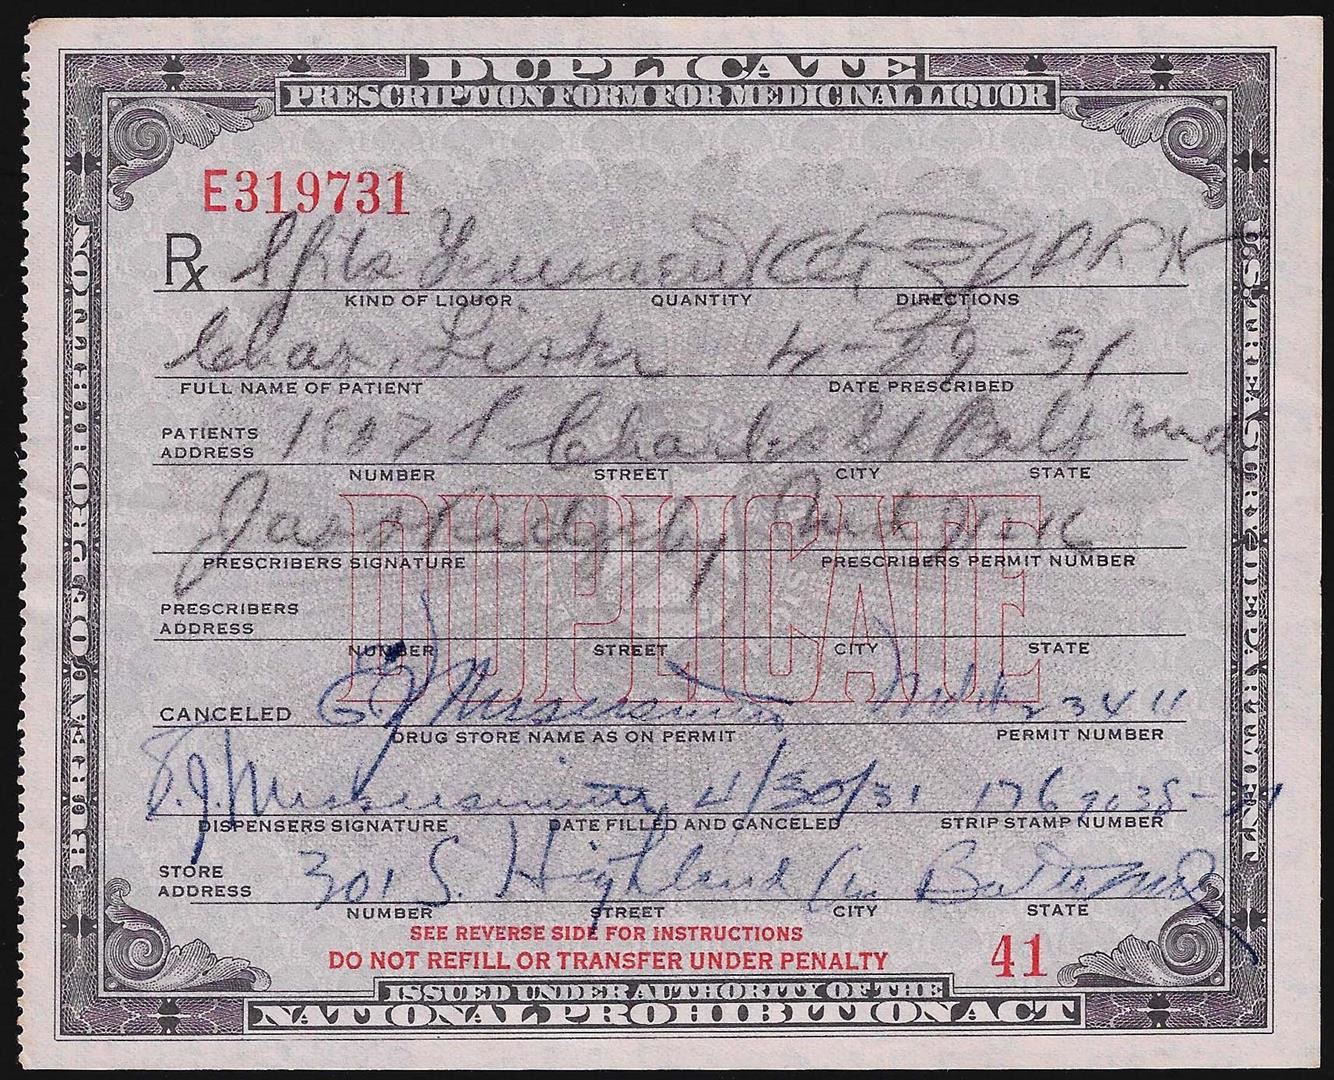 DUPLICATE
PRESCRIPTION FORM FOR MEDICINAL LIQUOR
E319731
Rx Spts
KIND OF LIQUOR QUANTITY DIRECTIONS
Chas. Lister 4-29-31
FULL NAME OF PATIENT DATE PRESCRIBED
PATIENTS ADDRESS 1807 S Charles St Balt Md
NUMBER STREET CITY STATE
Jas Ridgely
DUPLICATE
PRESCRIBERS SIGNATURE PRESCRIBERS PERMIT NUMBER
PRESCRIBERS ADDRESS
NUMBER STREET CITY STATE
CANCELED 23411
DRUG STORE NAME AS ON PERMIT PERMIT NUMBER
4/30/31
DISPENSERS SIGNATURE DATE FILLED AND CANCELED STRIP STAMP NUMBER
STORE ADDRESS 301 S. Highland Balto Md
NUMBER STREET CITY STATE
SEE REVERSE SIDE FOR INSTRUCTIONS
DO NOT REFILL OR TRANSFER UNDER PENALTY 41
ISSUED UNDER AUTHORITY OF THE
NATIONAL PROHIBITION ACT
BUREAU OF PROHIBITION
U.S. TREASURY DEPARTMENT